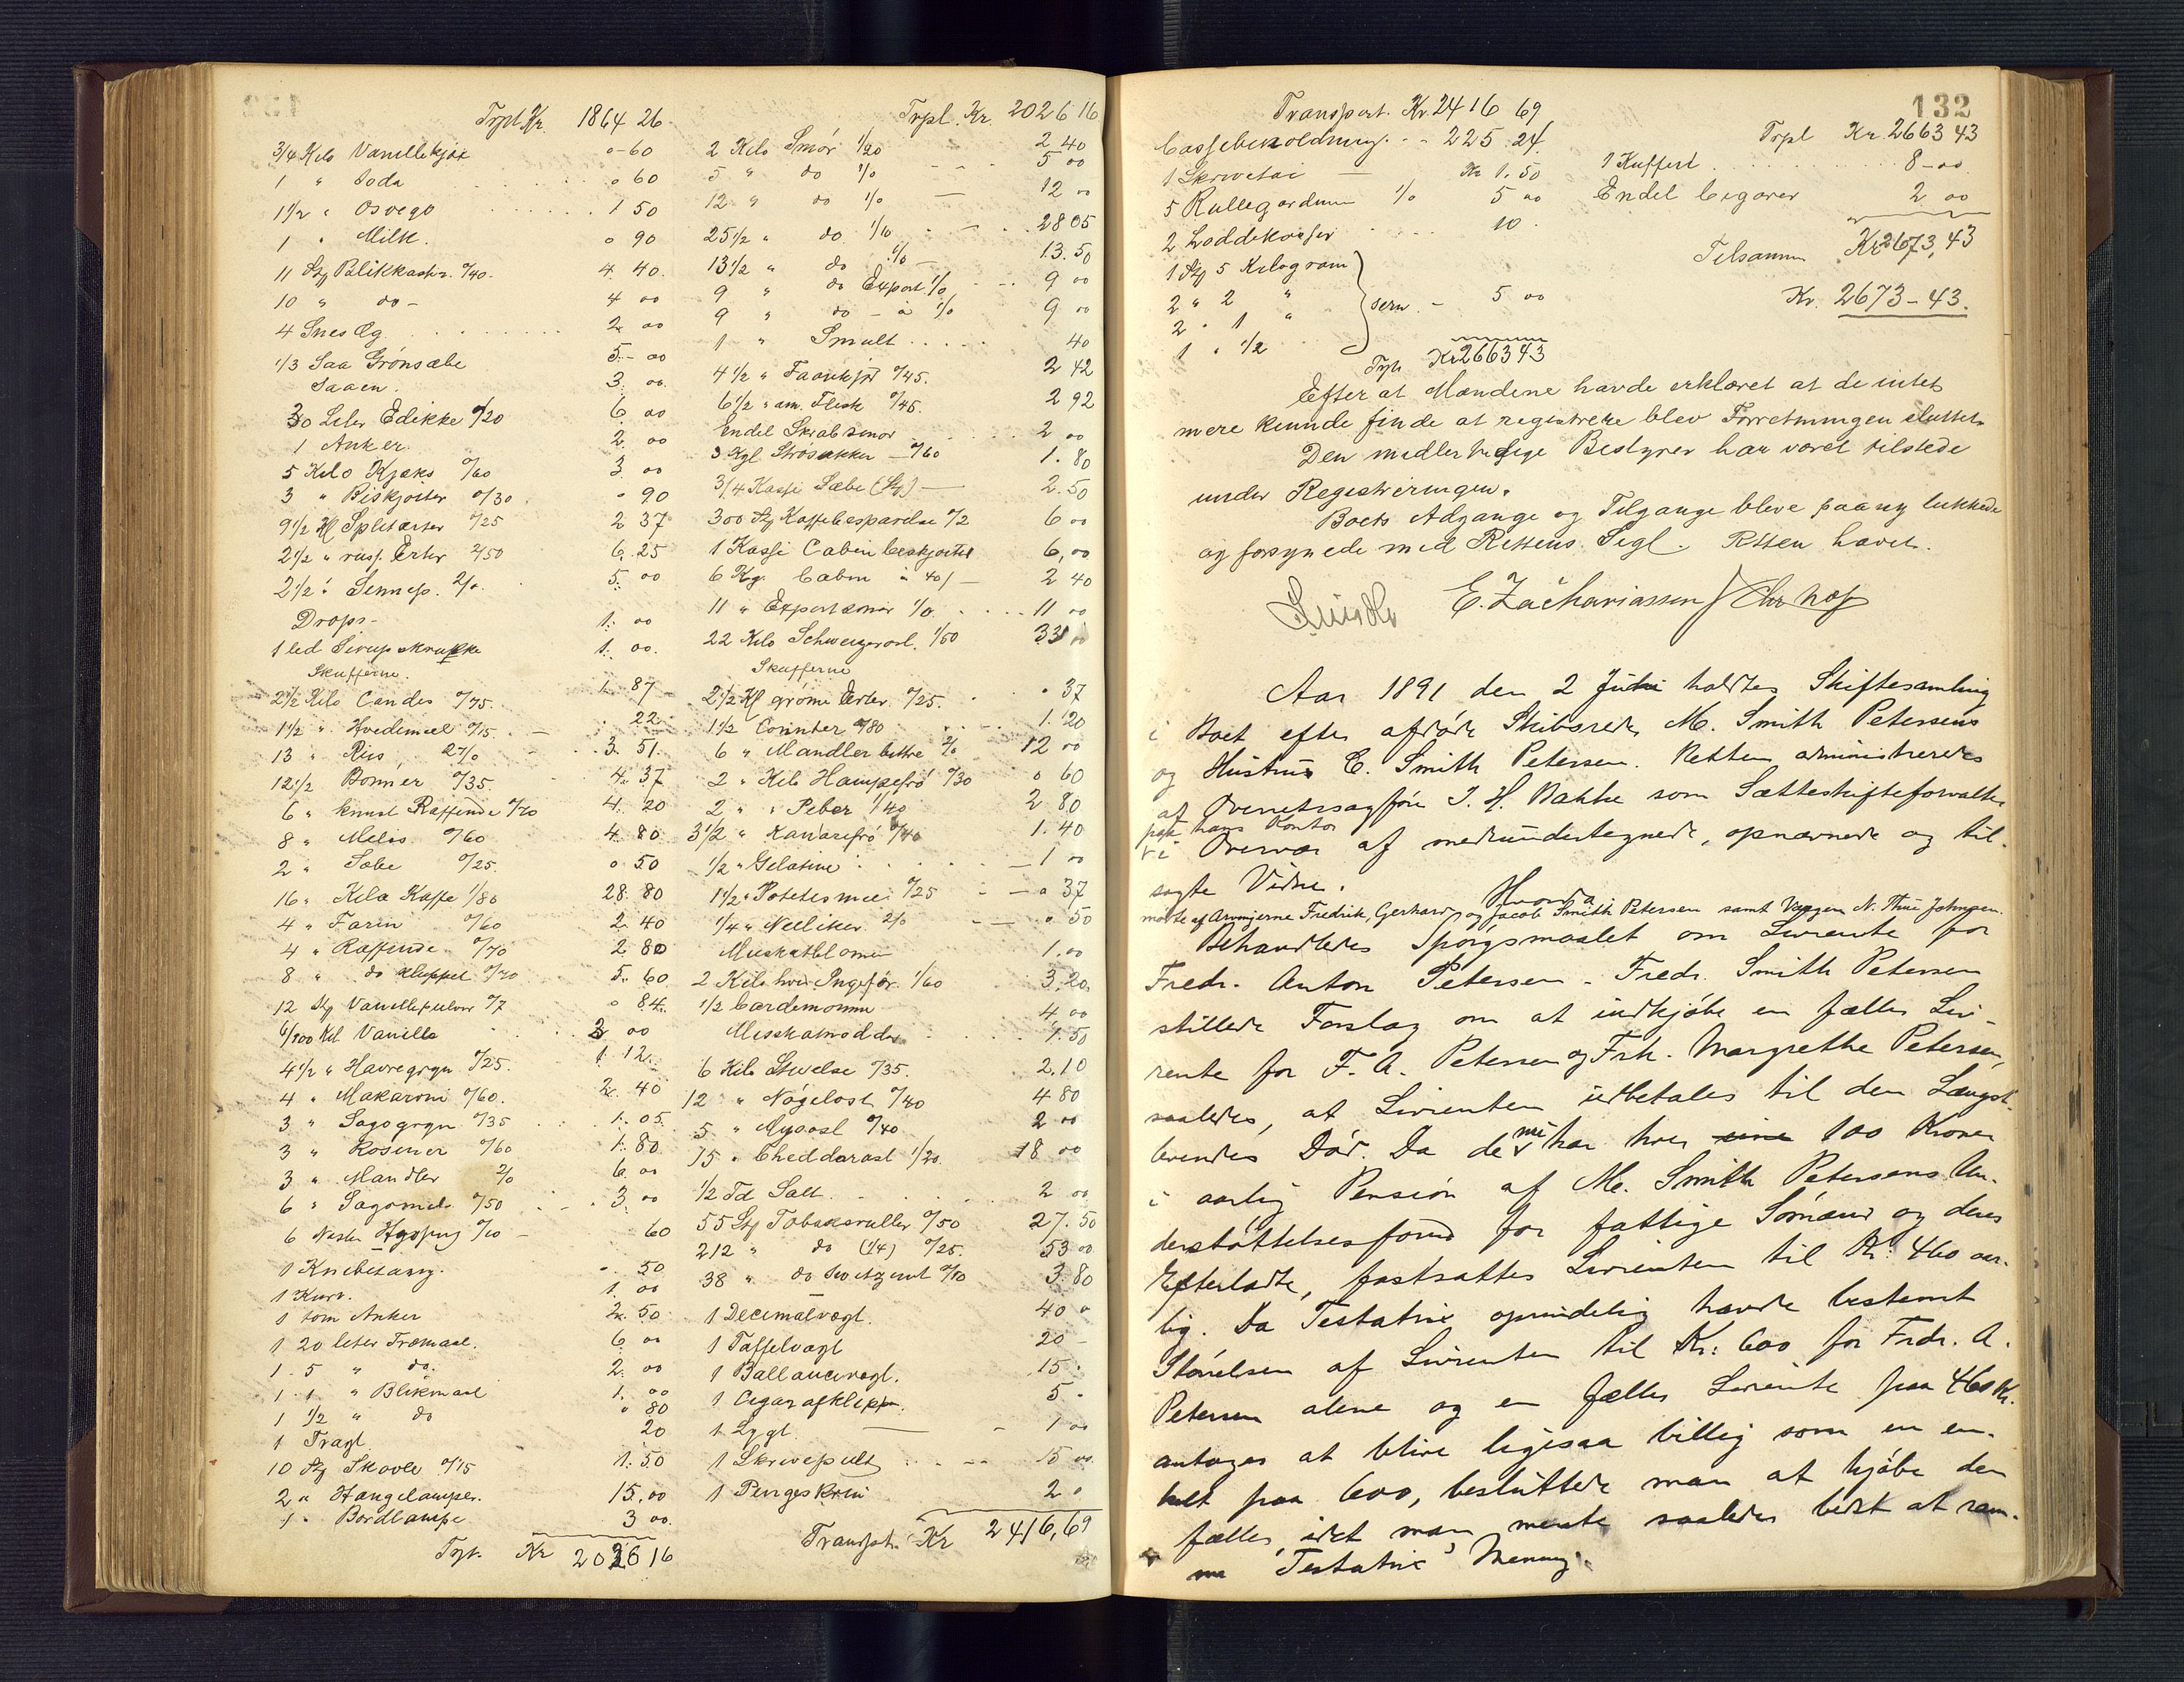 Trpt. Kr. 1864 26
3/4 Kilo Vanillekjæx 0-60
1 " Soda 0 60
1 1/2 " Osvego 1 50
1 " Milk. 0 90
11 Stz Blikkasker. 0/40. 4. 40.
10 " do - 4 00
4 Snes Æg 2 00
1/3 Saa Grønsæbe 5 - 00
Saaen. 3. 00.
30 Leter Edikke 0/20 6. 00
1 Anker. 2. 00
5 Kilo Kjæks 0/60 3. 00
3 " Biskjoiter 0/30. 0 90
9 1/2 Kl Spliterter 0/25 2 37
2 1/2 " russ. Erter 2/50 6. 25
2 1/2 " Sennep. 2/0. 5. 00
Drops- 1. 00
1 led Sirupskrukke 1. 00.
Skufferne.
2 1/2 Kilo Candis 0/75. 1. 87
1 1/2 " Hvedemeel 0/15. 22
13 " Riis, 27/0 3. 51.
12 1/2 Bønner 0/35. 4. 37
6 " knust Raffinde 0/70 4. 20
8 " Melis 0/60 4. 80
2 " Sæbe 0/25. 0 50
16 " Kilo Kaffe 1/80 28. 80
4 " Farin 0/60 2. 40
4 " Raffinde 0/70 2 80
8 " do kluppet 0/70 5. 60
12 Stz Vanillepulver 0/7 0 84.
6/100 Kil Vanille 3 00
4 1/2 " Havregryn 0/25. 1. 12.
4 " Makaroni 0/60. 2. 40
3 " Sagogryn 0/35 1. 05.
3 " Rosiner 0/60 1. 80
3 " Mandler 2/0 6. 00
6 " Sagomel 0/50 3. 00
6 Nøster 0/10 60
1 Knibetang. 0. 50
1 Kurv. 1. 00
1 tom Anker 2. 50
1 20 leter Træmaal. 6. 00
1 5 " do. 2. 00
1 1 " Blikmaal 1. 00
1 1/2 " do 0 80
1 Tragt 20
10 Stz Skovle 0/15 1. 50
2 " Hængelamper. 15. 00
1 " Bordlampe 3 00.
Trpt. Kr 2026 16
Trpl. Kr. 2026 16
2 Kilo Smør 1/20 2 40
5 " do 1/0 5 00
12 " do 1/0 12 00
25 1/2 " do 1/10 28 05
13 1/2 " do 1/0 13. 50
9 " do Export 1/0 9 00
9 " do - a 1/0 9 00
1 " Smult 40
4 1/2 " Faarekjød 0/45. 2 42
6 1/2 " am. Flesk 0/45. 2 92
Endel Skrabsmør 2 00
3 Kgl Strøsukker - 0/60 1. 80
3/4 Kasse Sæbe (Stz) 2. 50
300 Stz Kaffebesparelse 0/2 6 00
1 Kasse Cabinbeskjoiter 6, 00
6 Kg. Cabin a 40/- 2 40
11 " Exportsmør 1/0. 11 00
22 Kilo Schweizerost. 1/50 33
Skufferne
2 1/2 Kl grønne Erter 0/25. 0 37
1 1/2 Corinter 0/80 1. 20
6 " Mandler bittre 2/0 12 00
2 " Kilo Hampefrø 0/30 0 60
2 " " Peber 1/40 2 80
3 1/2 " Kanariefrø 0/40 1. 40
1/2 " Gelatine 1 00
1 1/2 " Potetesmeel 0/25 0 37
1/4 " Nelliker 2/0 0 50
Muskatblomme 1. 00
2 Kilo hvid Ingefær. 1/60 3. 20.
1/2 Cardemomme 4 00
Muskatnødder 1. 50
6 Kilo Stivelse 0/35. 2. 10
12 " Nøgelost 0/40 4 80
5 " Mysost 0/40 2 00
15 " Cheddarost 1/20. 18 00
1/2 Td Salt. 2 00
55 Stz Tobaksruller 0/50 27. 50
212 " do (1/4) 0/25. 53 00
38 " do Switzent 0/10 3. 80
1 Decimalvægt. 40 0
1 Taffelvægt 20 -
1 Ballancevægt. 15.
1 Cigarafklipper. 5 -
1 Lygt. 1 00
1 Skrivepult 15 00.
1 Pengeskrin 2 0
Transpt. Kr 2416,69
132
Transport. Kr. 2416 69
Cassebeholdning. - - 225. 24
1 Skrivetøi Kr 1. 50
5 Rullegardiner 1/0 5 00
2 Loddekasser 10.
1 Stz 5 Kilogram
2 " 2 "
2 " 1 " sem. - 5 00
1 " 1/2
Trpt. Kr 2663 43
Trpl Kr. 2663 43
1 Kuffert 8 - 00
Endel Cigarer 2 00
Tilsammen Kr 2673, 43
Kr. 2673 - 43.
Efter at Mændene havde erklæret at de intet
mere kunde finde at registrere blev Forretningen sluttet.
Den midlertidige Bestyrer har været tilstede
under Registreringen.
Boets Adgange og Tilgange bleve paany lukkede
og forsynede med Rettens Segl. Retten hævet.
E. Zachariassen
Aar 1891, den 2 Juni holdtes Skiftesamling
i Boet efter afdøde Skibsreder M. Smith Petersen
og Hustru C. Smith Petersen. Retten administreredes
af Overretssagfører J. H. Bakke som Sætteskifteforvalter
paa hans Kontor
i Overvær af medundertegnede, opnævnede og til-
sagte Vidne.
Hvorda
mødte af Arvingerne Fredrik, Gerhard og Jacob Smith Petersen samt Værgen N. Thue Johnsen.
Behandledes Spørgsmaalet om Livrente for
Fredr. Anton Petersen. Fredr. Smith Petersen
stillede Forslag om at indkjøbe en fælles Liv-
rente for F. A. Petersen og Frk. Margrethe Petersen,
saaledes, at Livrenten udbetales til den Længst-
levendes Død. Da de nu har hver 100 Kroner
i aarlig Pension af M. Smith Petersens Un-
derstøttelsesfond for fattige Sømænd og deres
Efterladte, fastsattes Livrenten til Kr. 460 aar-
lig. Da Testatrix oprindelig havde bestemt
Størrelsen af Livrenten til Kr: 600 for Fredr. A.
Petersen alene og en fælles Livrente paa 460 Kr.
antoges at blive ligesaa billig som en en-
kelt paa 600, besluttede man at kjøbe den
fælles, idet man mente saaledes bedst at ram-
me Testatrix' Mening.